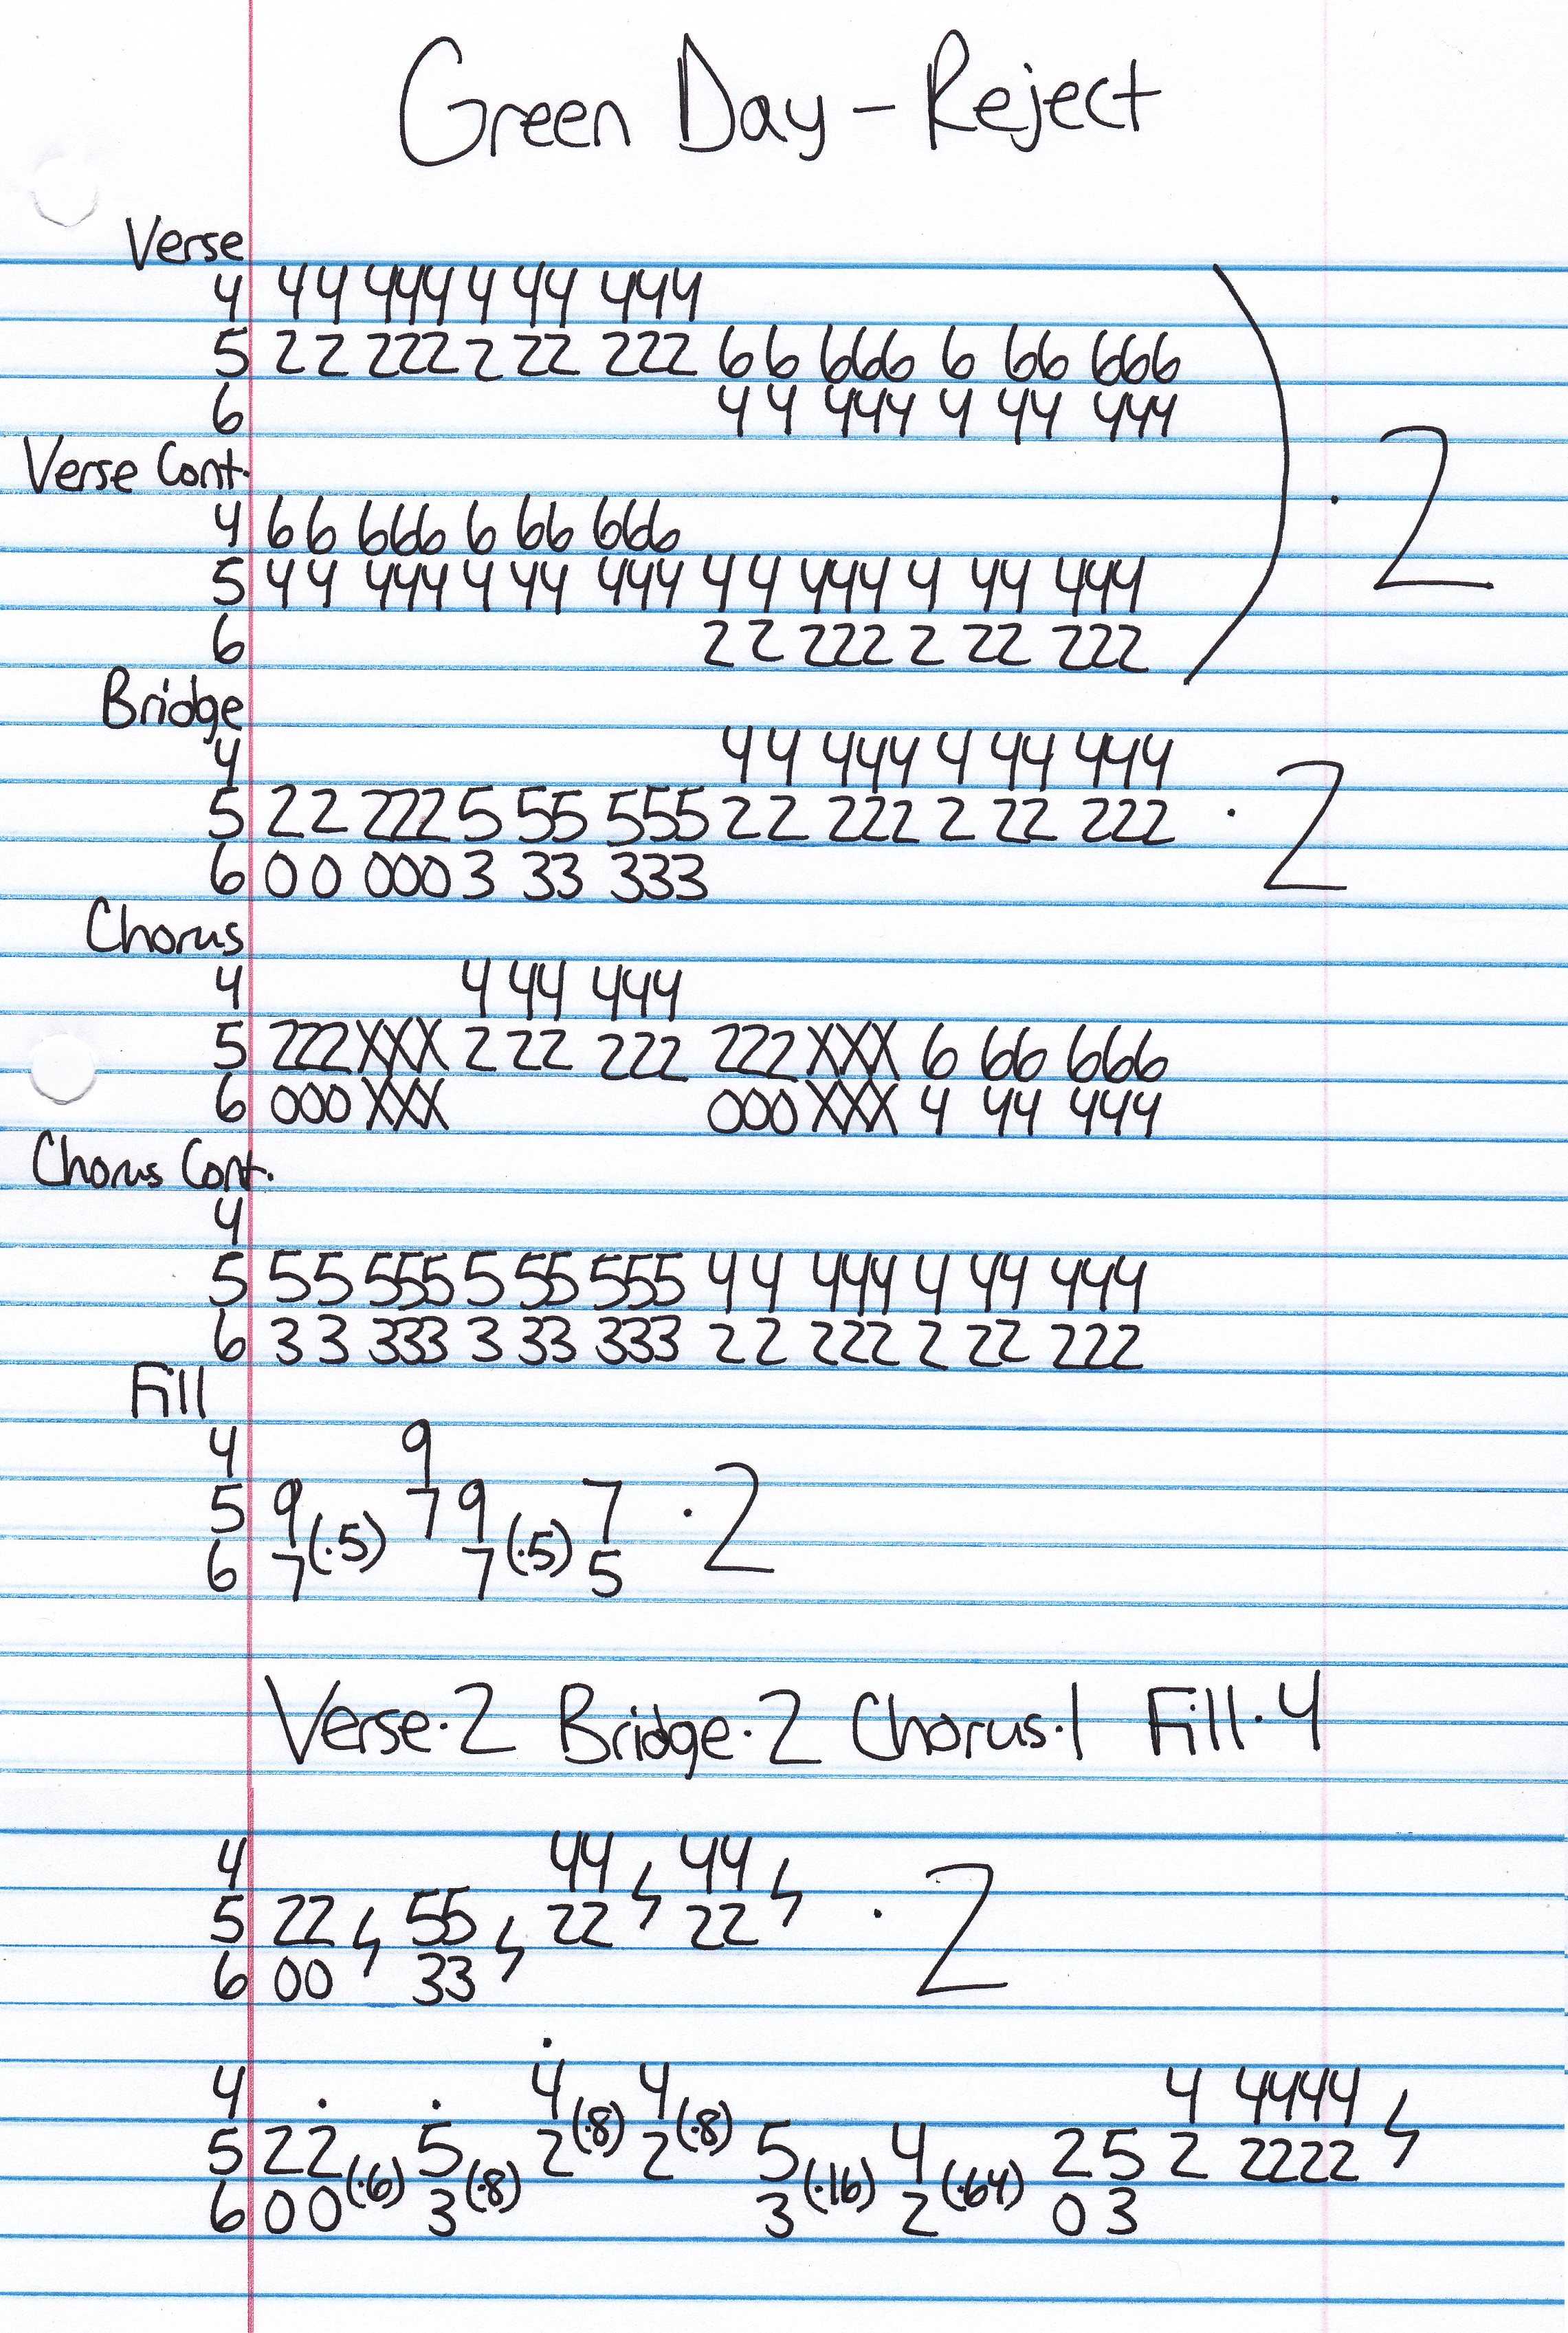 Green Day - Reject
Verse
4 44 444 4 44 444
5 22 222 2 22 222 66 666 6 66 666
6 44 444 4 44 444
Verse Cont.
4 66 666 6 66 666
5 44 444 4 44 444 44 444 4 44 444
6 22 222 2 22 222
· 2
Bridge
4 44 444 4 44 444
5 22 222 5 55 555 22 222 2 22 222
6 00 000 3 33 333
· 2
Chorus
4 4 44 444
5 222 XXX 2 22 222 222 XXX 6 66 666
6 000 XXX 000 XXX 4 44 444
Chorus Cont.
4
5 55 555 5 55 555 44 444 4 44 444
6 33 333 3 33 333 22 222 2 22 222
Fill
4 9
5 9 (·5) 7 9 (·5) 7 · 2
6 7 7 5
Verse·2 Bridge·2 Chorus·1 Fill·4
4 44 44
5 22 55 22 22 · 2
6 00 33
4 4 (·8) 4 (·8) 4 4444
5 22 (·6) 5 (·8) 2 2 5 (·16) 4 (·64) 2 5 2 2222
6 00 3 3 2 0 3